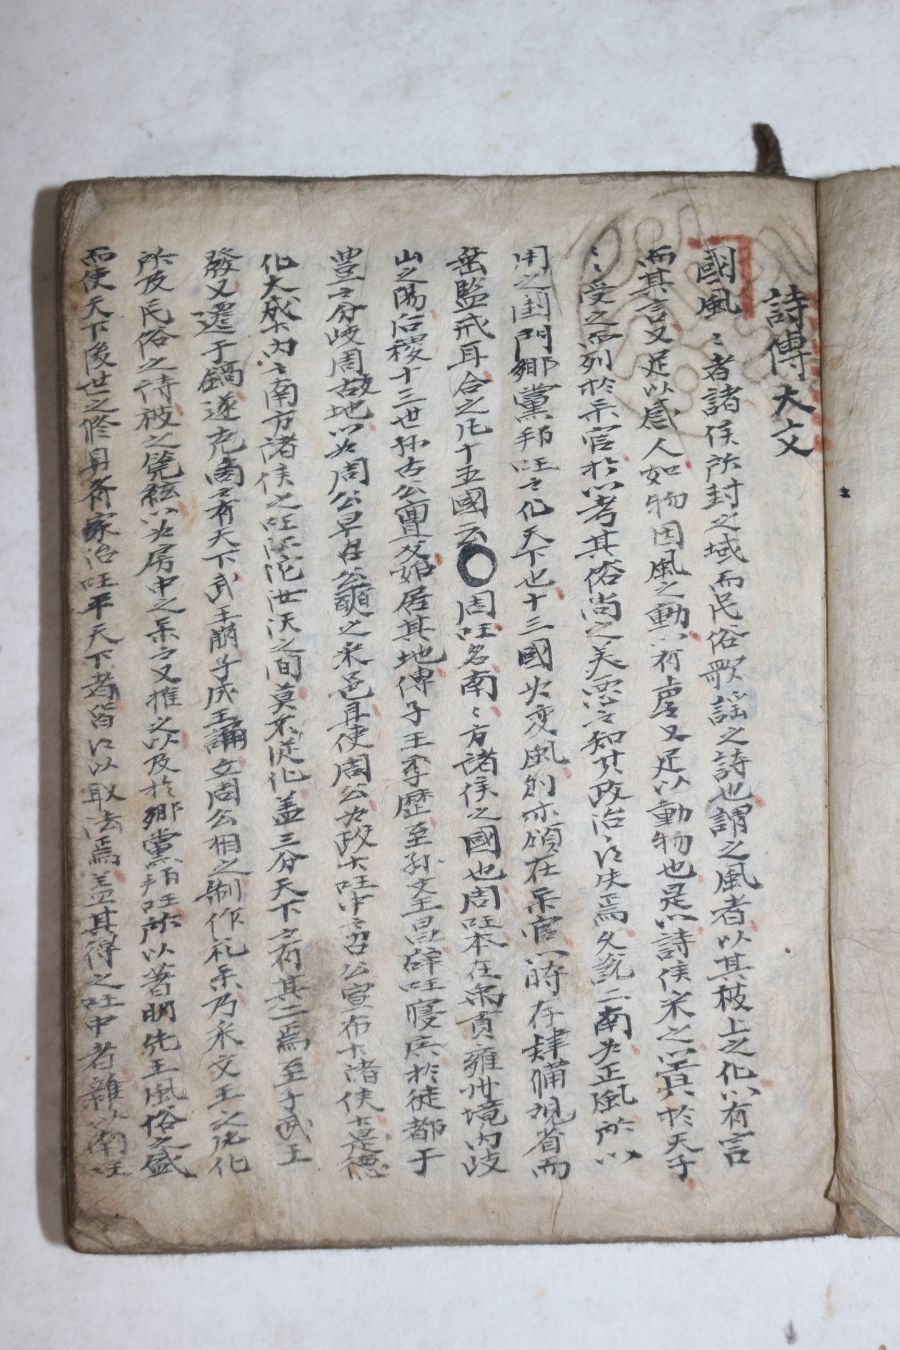 詩傳大文
國風〻者諸侯所封之域而民俗歌謡之詩也謂之風者以其被上之化以有言
而其言又足以感人如物因風之動以有声又足以動物也是以詩侯采之以貢於天子
〻受之而列於楽官於以考其俗尚之美悪而知其政治之得失焉久說二南为正風所以
用之閨門鄉黨邦国而化天下也十三國为変風則亦領在楽官以時存肄備观省而
垂監戒耳合之凡十五國云〇周国名南〻方諸侯之國也周国本在禹貢雍州境内岐
山之陽后稷十三世孫古公亶父始居其地傳子王季歷至孫文王昌辟国寖廣於徙都于
豊〻分岐周故地以为周公旦召公奭之采邑且使周公为政于国中而召公宣布于諸侯于是德
化大成于内〻南方諸侯之国江沱汝汉之間莫不從化盖三分天下而有其二焉至子武王
發又遷于鎬遂克商而有天下武王崩子成王誦立周公相之制作礼楽乃采文王之世化
所及民俗之詩被之筦絃以为房中之楽而又推之以及於鄉黨邦国所以著明先王風俗之盛
而使天下後世之修身齊家治国平天下者皆得以取法焉盖其得之国中者雜以南国